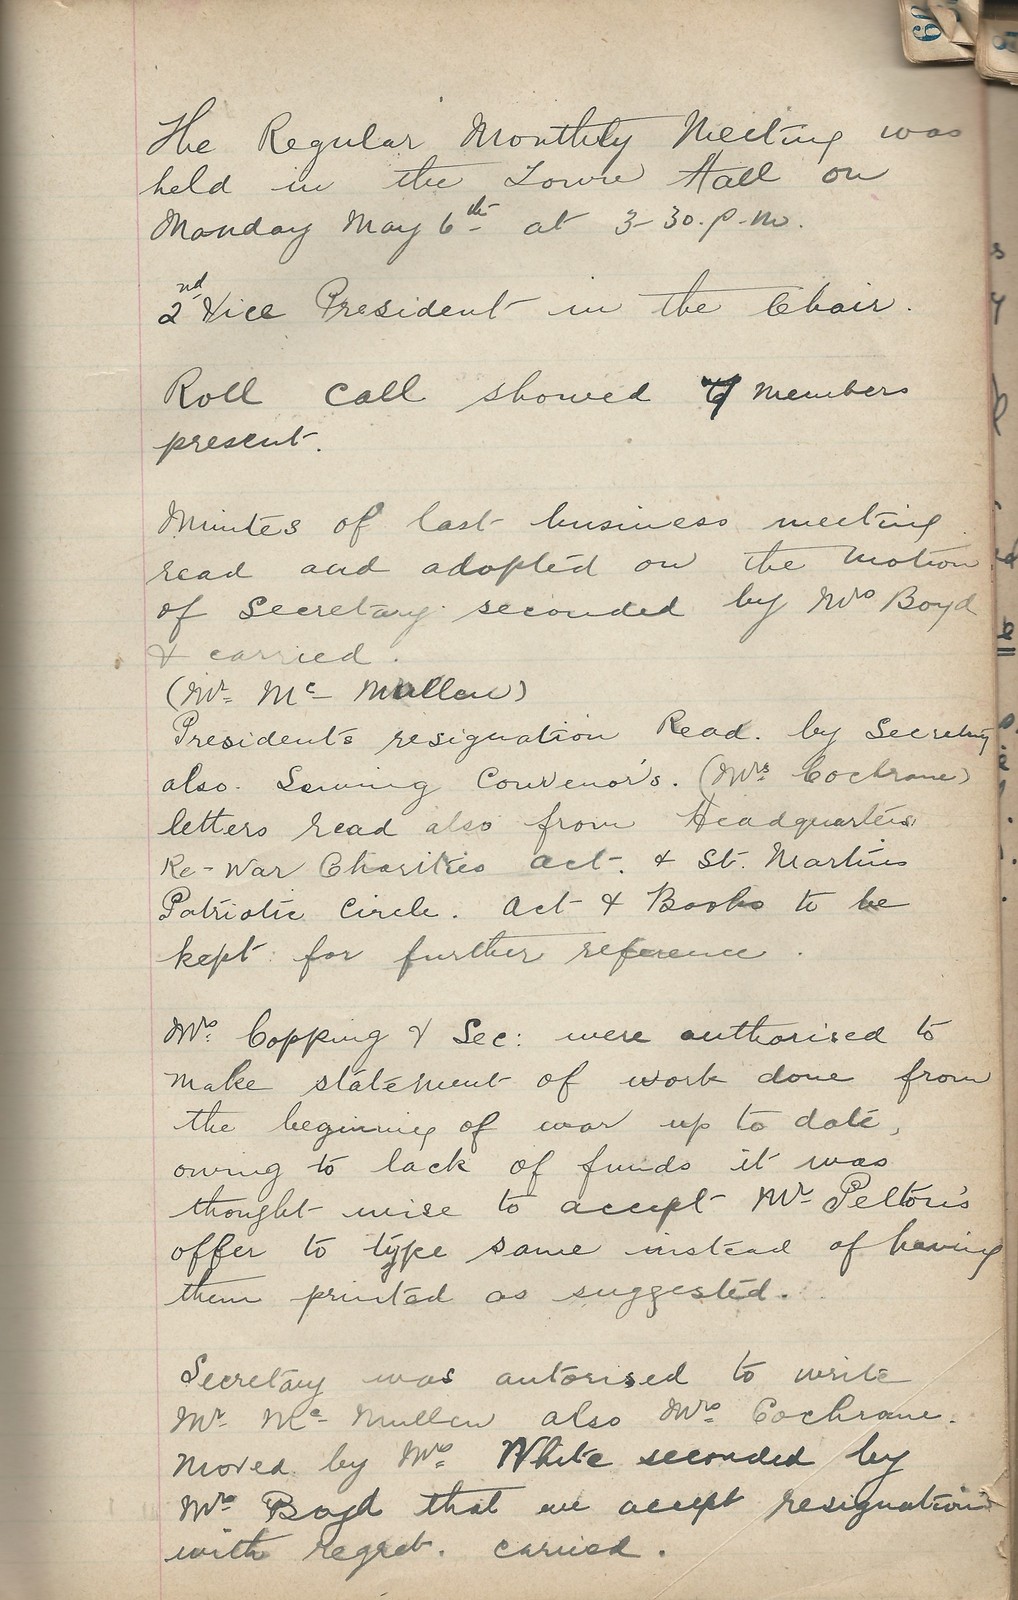 The Regular Monthly Meeting was
held in the Town Hall on
Monday May 6th at 3-30.p.m.
2nd Vice President in the Chair.
Roll call showed 7 members
present.
Minutes of last business meeting
read and adopted on the motion
of Secretary seconded by Mrs Boyd
& carried.
(Mr. Mc Mullen)
President's resignation Read. by Secretary
also. Sewing Convenor's. (Mrs Cochrane)
letters read also from Headquarters
Re-War Charities act. & St. Martins
Patriotic Circle. Act & Books to be
kept for further reference.
Mrs. Copping & Sec: were authorised to
make statement of work done from
the beginning of war up to date,
owing to lack of funds it was
thought wise to accept Mr. Pelton's
offer to type same instead of having
them printed as suggested.
Secretary was autorised to write
Mr. Mc Mullen also Mrs. Cochrane.
Moved by Mrs. White seconded by
Mrs Boyd that we accept resignations
with regret. carried.